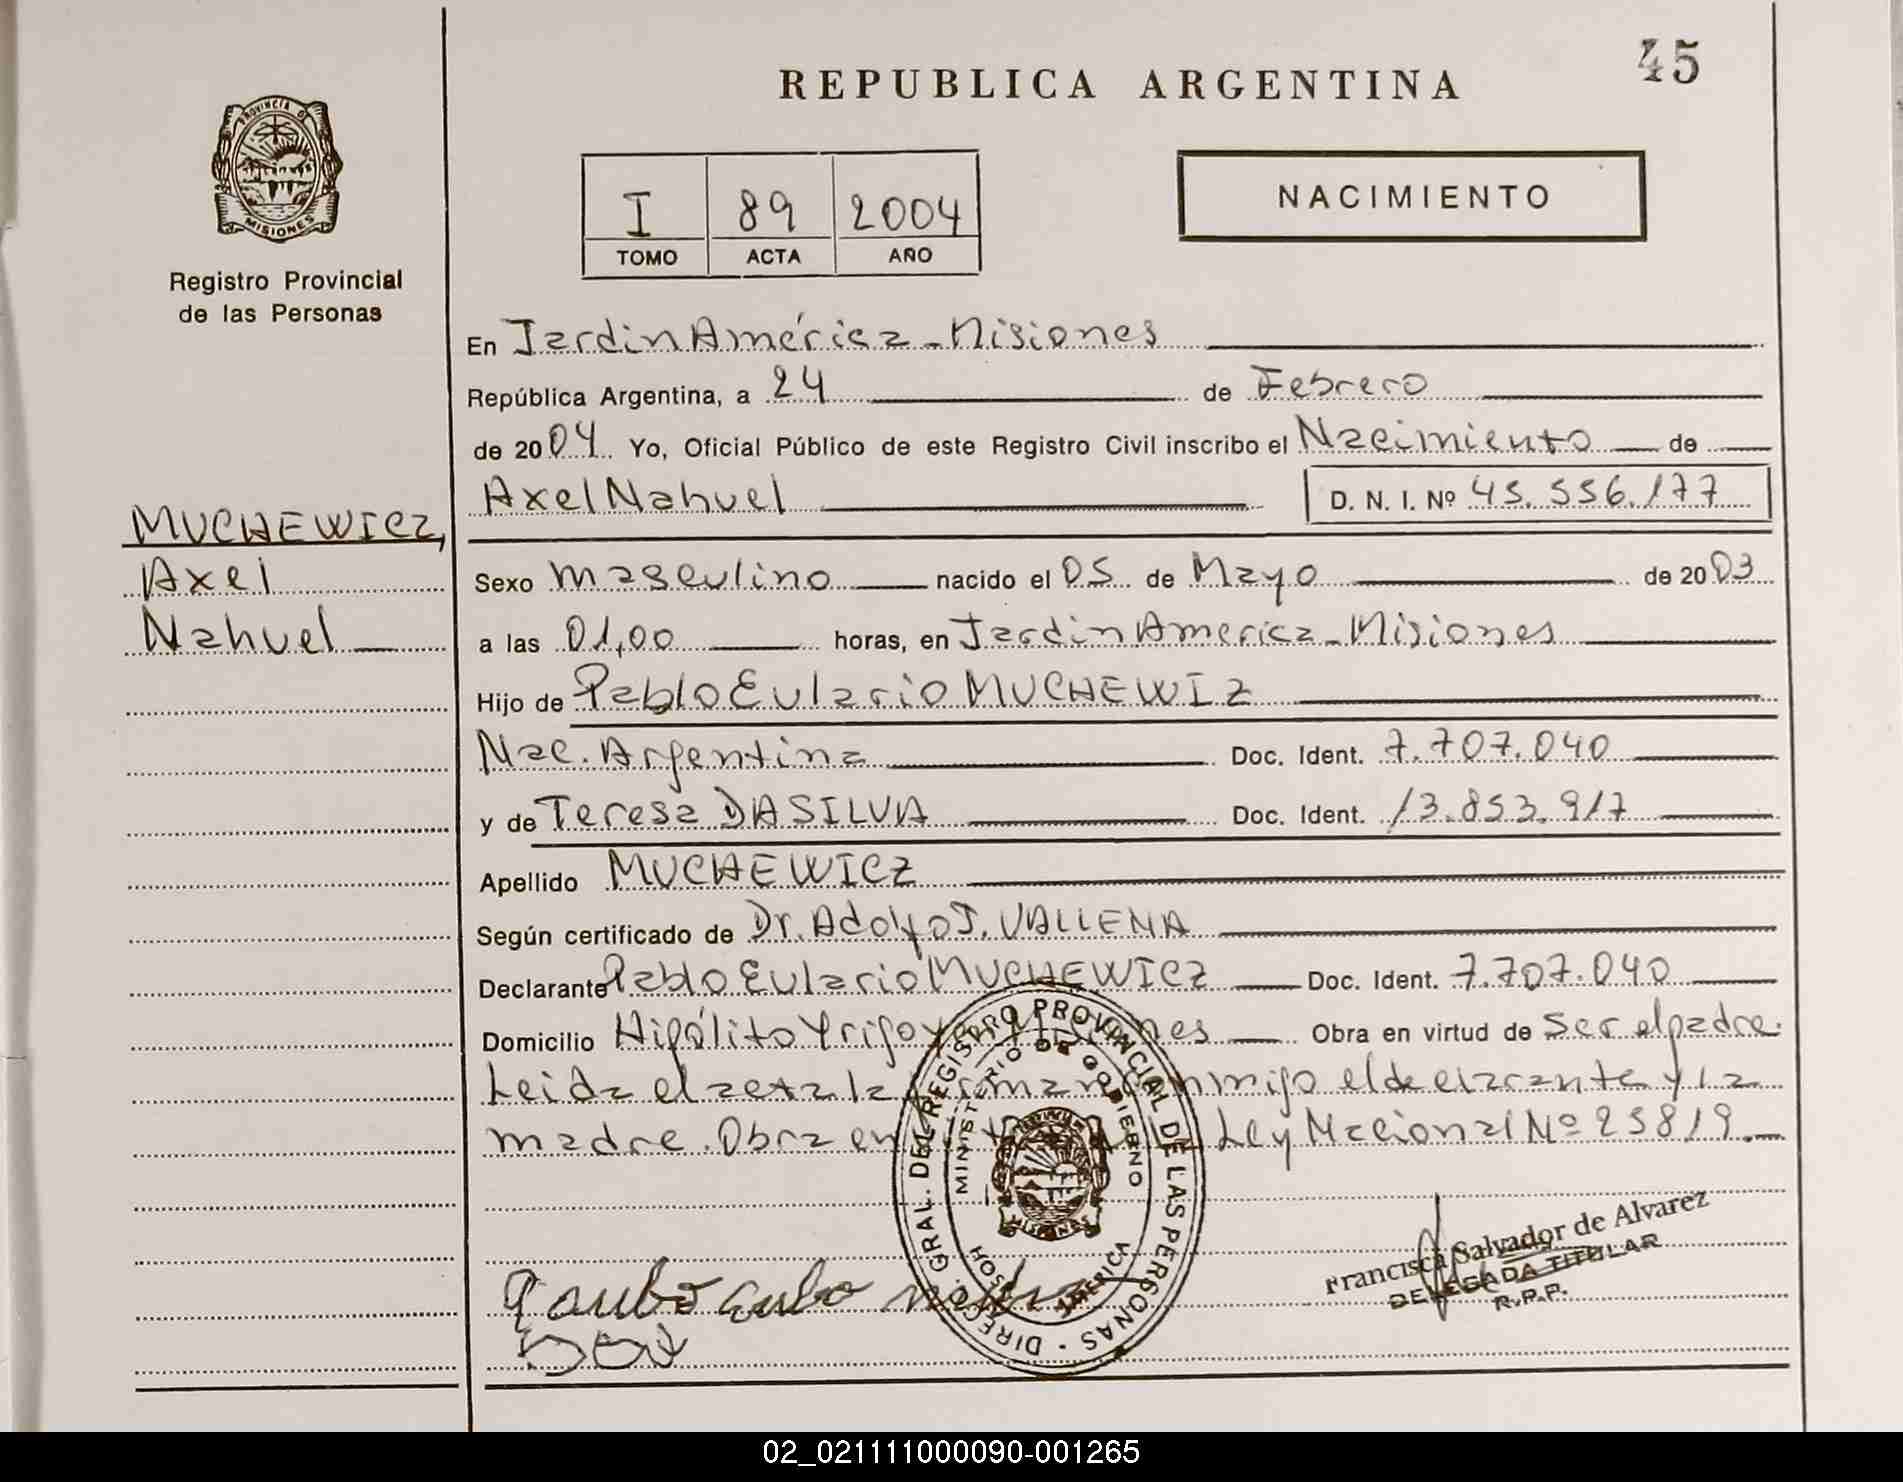 45
REPUBLICA ARGENTINA
PROVINCIA DE
MISIONES
Registro Provincial
de las Personas
I 89 2004
TOMO ACTA AÑO
NACIMIENTO
En Jardin América - Misiones
República Argentina, a 24 de Febrero
de 2004 Yo, Oficial Público de este Registro Civil inscribo el Nacimiento de
Axel Nahuel D. N. I. Nº 45.556.177
MUCHEWICZ,
Axel
Nahuel
Sexo Masculino nacido el 05 de Mayo de 2003
a las 01,00 horas, en Jardin America - Misiones
Hijo de Pablo Eulario MUCHEWIZ
Nac. Argentina Doc. Ident. 7.707.040
y de Teresa DASILVA Doc. Ident. 13.853.917
Apellido MUCHEWICZ
Según certificado de Dr. Adolfo J. VALLENA
Declarante Pablo Eulario MUCHEWICZ Doc. Ident. 7.707.040
Domicilio Hipólito Obra en virtud de ser el padre.
Leida el acta la conmigo el declarante y la
madre. Obra en Ley Nacional Nº 25819.
DIREC. GRAL. DEL REGISTRO PROVINCIAL DE LAS PERSONAS
MINISTERIO DE GOBIERNO
MISIONES
AMERICA
Francisca Salvador de Alvarez
DELEGADA TITULAR
R.P.P.
02_021111000090-001265